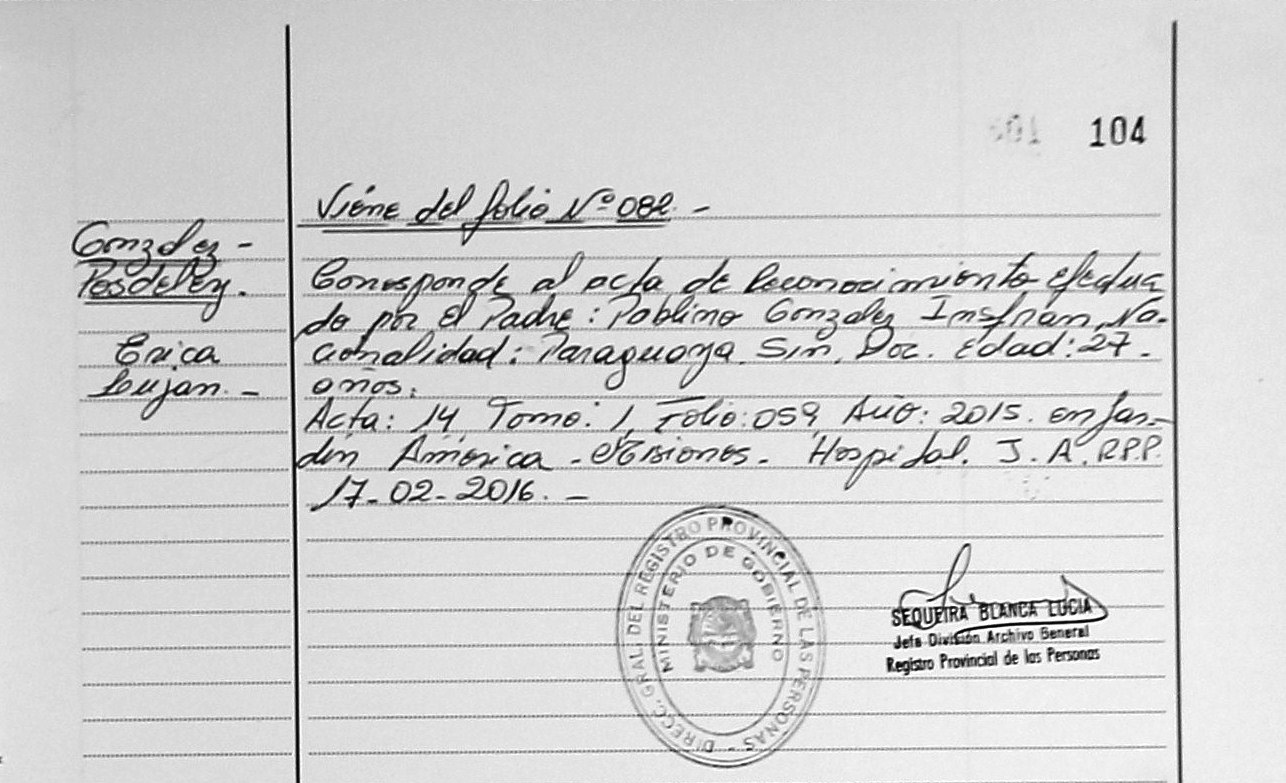 104
Viene del folio Nº 082. -
Gonzalez -
Posdeley.
Erica
Lujan. -
Corresponde al acta de Reconocimiento efectua
do por el Padre: Poblino Gonzalez Insfran, Na-
cionalidad: Paraguaya. Sin. Doc. Edad: 27.
años.
Acta: 14, Tomo: 1, Folio: 059, Año: 2015. en Jar-
din America - Misiones. Hospital. J. A. R.P.P.
17-02-2016. -
DIRECC. GRAL. DEL REGISTRO PROVINCIAL DE LAS PERSONAS -
MINISTERIO DE GOBIERNO
SEQUEIRA BLANCA LUCIA
Jefa División Archivo General
Registro Provincial de las Personas